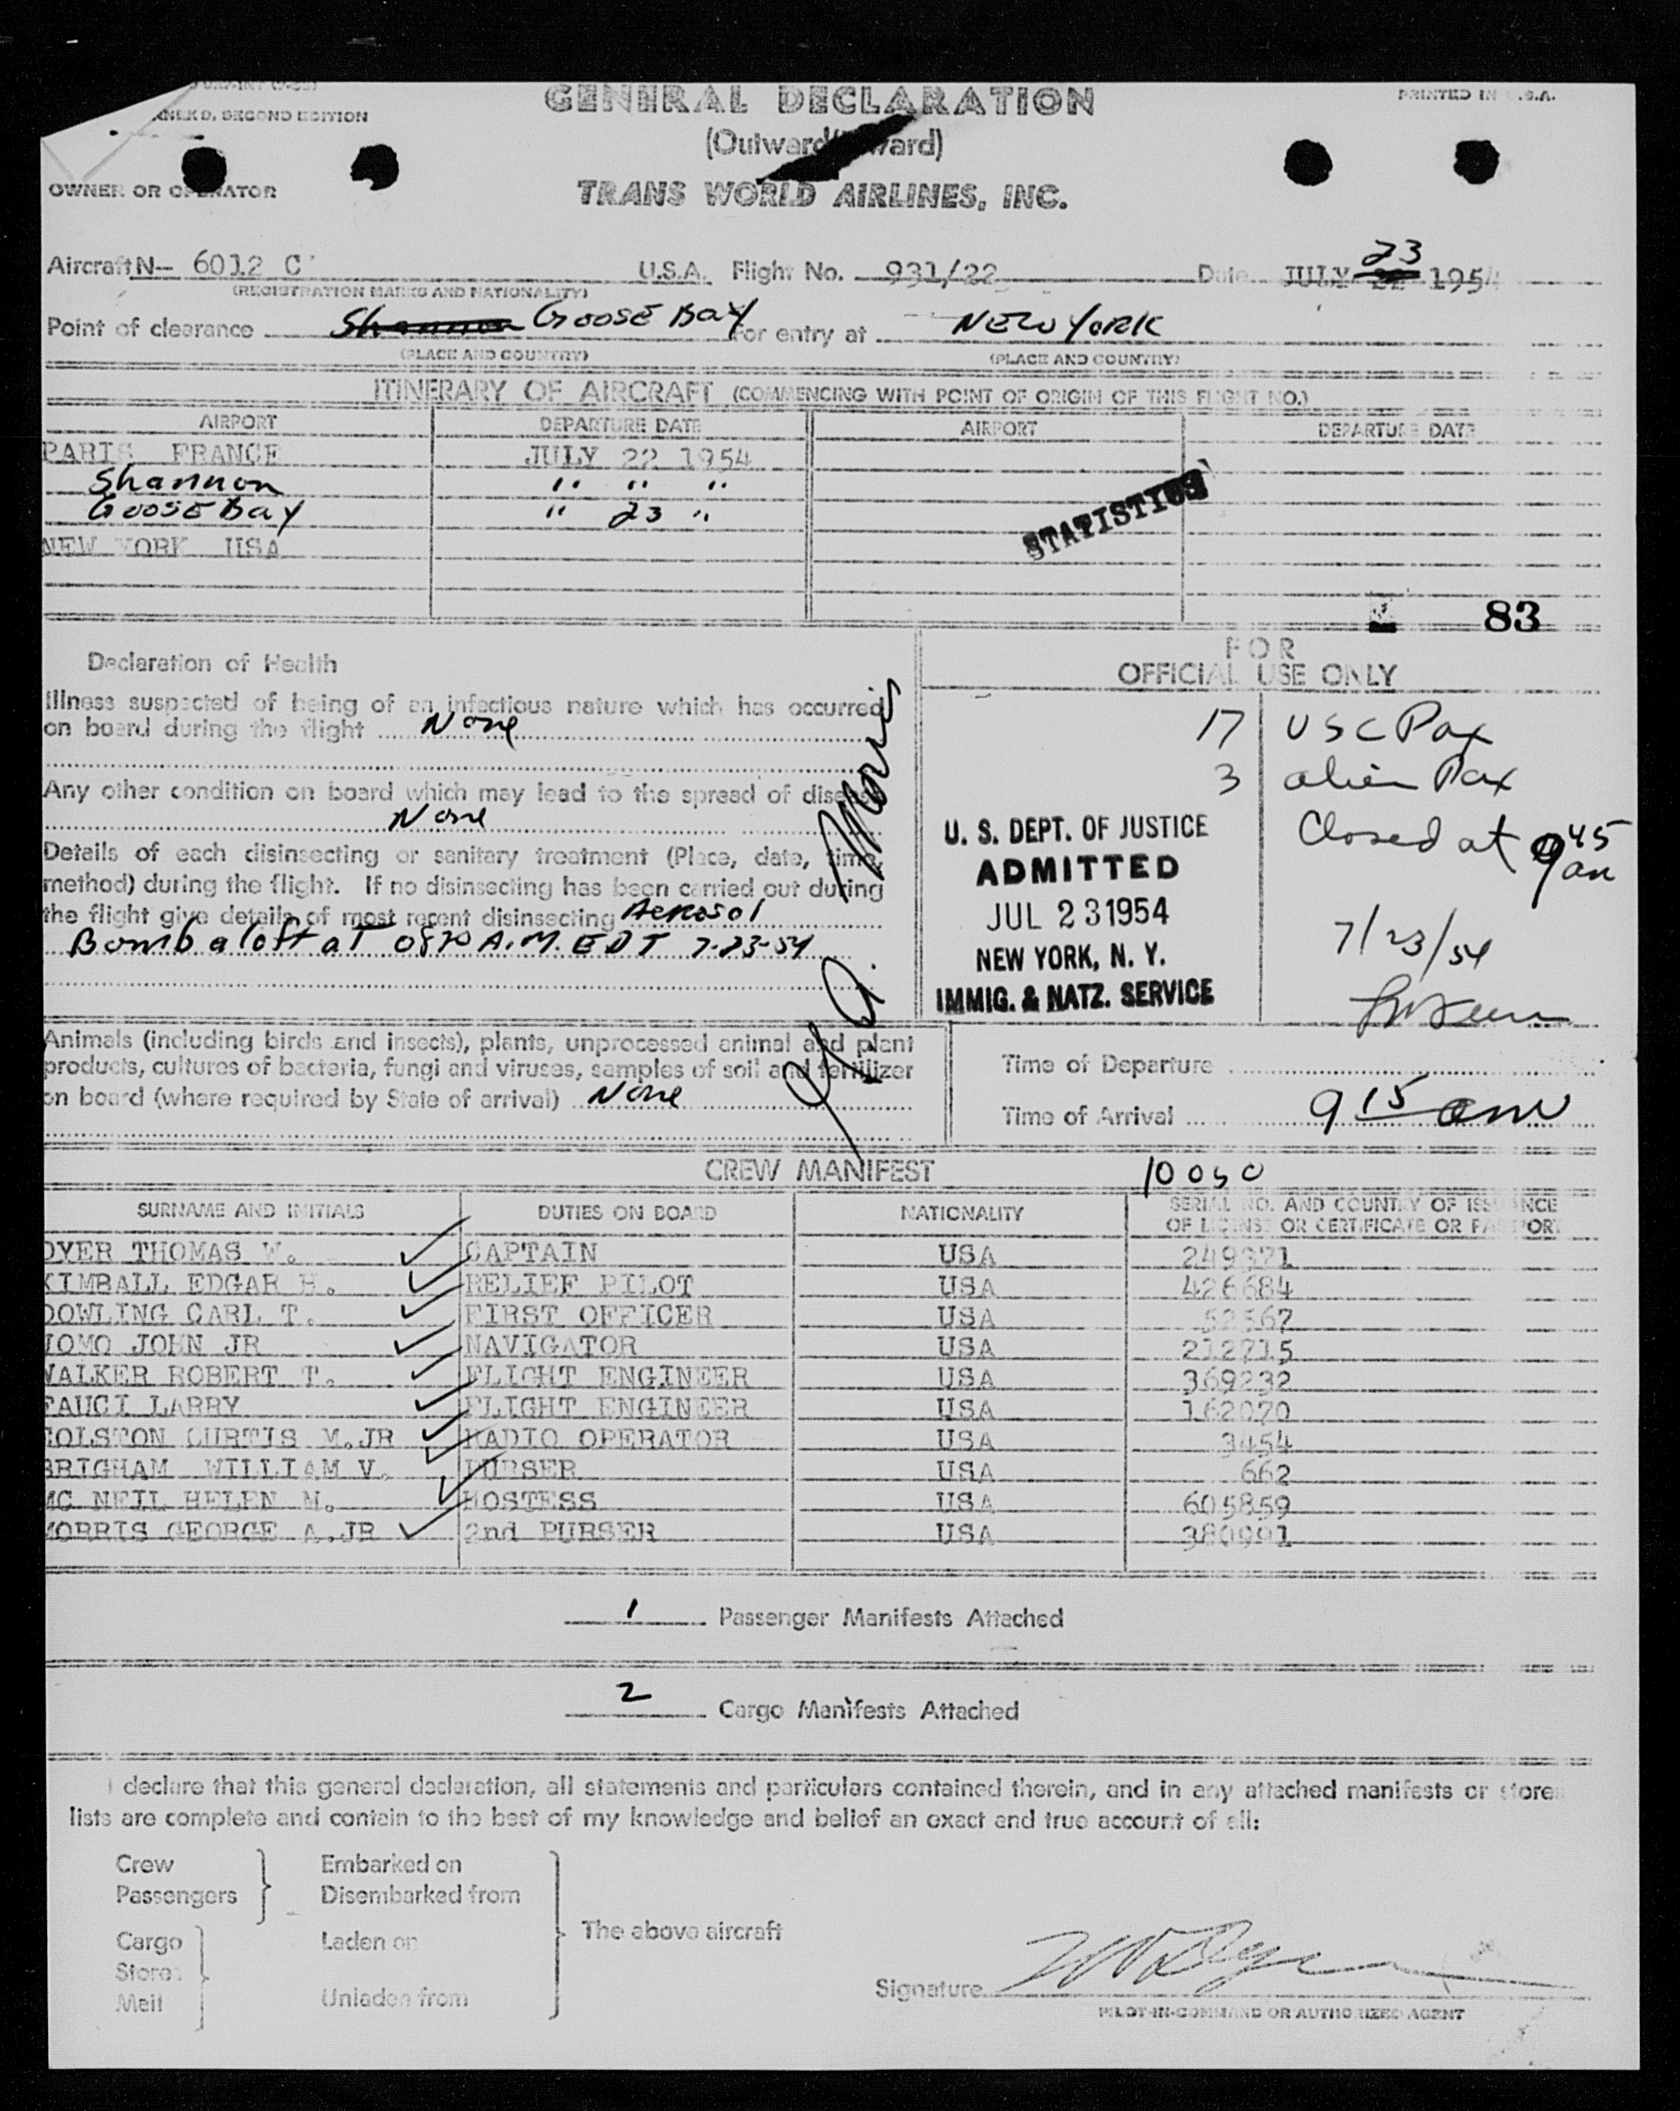 ANNEX D, SECOND EDITION
GENERAL DECLARATION
PRINTED IN U.S.A.
(Outward/Inward)
OWNER OR OPERATOR
TRANS WORLD AIRLINES, INC.
Aircraft N- 6012 C U.S.A. Flight No. 931/22 Date JULY 22 23 1954
(REGISTRATION MARKS AND NATIONALITY)
Point of clearance Shannon GOOSE BAY For entry at NEW YORK
(PLACE AND COUNTRY) (PLACE AND COUNTRY)
ITINERARY OF AIRCRAFT (COMMENCING WITH POINT OF ORIGIN OF THIS FLIGHT NO.)
AIRPORT DEPARTURE DATE AIRPORT DEPARTURE DATE
PARIS FRANCE JULY 22 1954
Shannon " " "
GOOSE Bay " 23 "
NEW YORK USA
STATISTICS
83
Declaration of Health
Illness suspected of being of an infectious nature which has occurred
on board during the flight None
Any other condition on board which may lead to the spread of disease
None
Details of each disinsecting or sanitary treatment (Place, date, time,
method) during the flight. If no disinsecting has been carried out during
the flight give details of most recent disinsecting Aerosol
Bomb aloft at 0830 A.M. EDT 7-23-54
G.A. Morris
FOR
OFFICIAL USE ONLY
17 USC Pax
3 alien Pax
Closed at 9 45 am
7/23/54
U. S. DEPT. OF JUSTICE
ADMITTED
JUL 23 1954
NEW YORK, N. Y.
IMMIG. & NATZ. SERVICE
Animals (including birds and insects), plants, unprocessed animal and plant
products, cultures of bacteria, fungi and viruses, samples of soil and fertilizer
on board (where required by State of arrival) None
Time of Departure
Time of Arrival 9 15 am
CREW MANIFEST 10 USC
SURNAME AND INITIALS DUTIES ON BOARD NATIONALITY SERIAL NO. AND COUNTRY OF ISSUANCE
OF LICENSE OR CERTIFICATE OR PASSPORT
DYER THOMAS W. CAPTAIN USA 249371
KIMBALL EDGAR H. RELIEF PILOT USA 426684
DOWLING CARL T. FIRST OFFICER USA 52567
JOHN JR NAVIGATOR USA 212715
WALKER ROBERT T. FLIGHT ENGINEER USA 369232
FAUCI LARRY FLIGHT ENGINEER USA 162070
COLSTON CURTIS M.JR RADIO OPERATOR USA 3454
BRIGHAM WILLIAM V. PURSER USA 662
MC NEIL HELEN M. HOSTESS USA 605859
MORRIS GEORGE A.JR 2nd PURSER USA 380991
1 Passenger Manifests Attached
2 Cargo Manifests Attached
I declare that this general declaration, all statements and particulars contained therein, and in any attached manifests or stores
lists are complete and contain to the best of my knowledge and belief an exact and true account of all:
Crew Embarked on
Passengers Disembarked from
The above aircraft
Cargo Laden on
Stores
Mail Unladen from
Signature
PILOT-IN-COMMAND OR AUTHORIZED AGENT